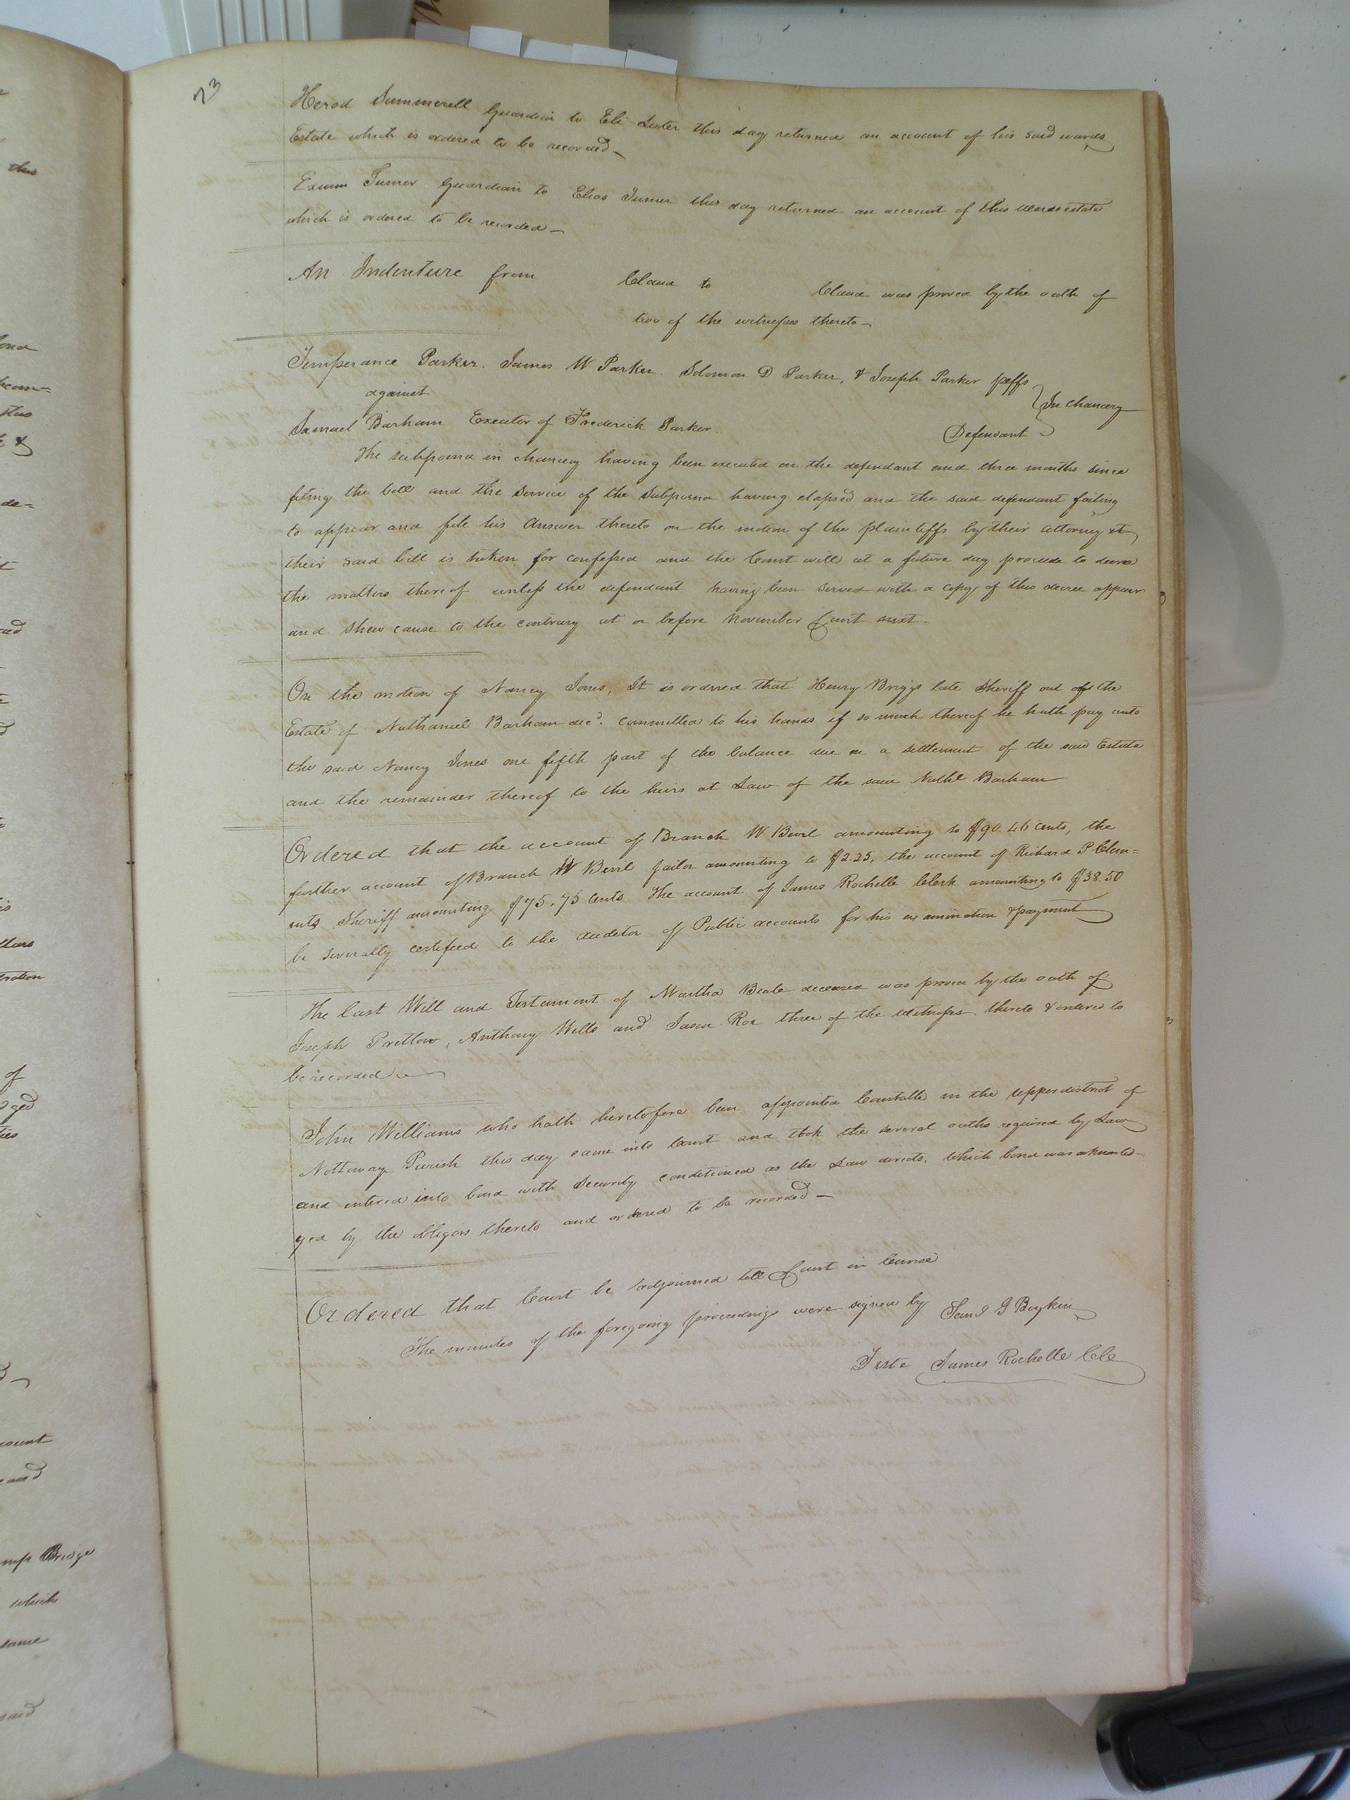 73
Herod Summerell Guardian to Eli Lister this day returned an account of his said wards
Estate which is ordered to be recorded
Exum Turner Guardian to Elias Turner this day returned an account of this wards estate
which is ordered to be recorded
An Indenture from Claud to Claud was proved by the oath of
two of the witnesses thereto
Temperance Parker, James W Parker, Solomon D Parker, & Joseph Parker peffs
against
In Chancery
Samuel Barham Executor of Frederick Parker Defendant
The subpoena in chancery having been executed on the defendant and three months since
filing the bill and the service of the Subpoena having elapsed and the said defendant failing
to appear and file his answer thereto on the motion of the plaintiffs by their attorney
their said bill is taken for confessed and the Court will at a future day procede to decree
the matters thereof unless the defendant having been served with a copy of this decree appear
and shew cause to the contrary at or before November Court next
On the motion of Nancy Jones, It is ordered that Henry Briggs late Sheriff out of the
Estate of Nathaniel Barham decd. committed to his hands if so much thereof he hath pay unto
the said Nancy Jones one fifth part of the balance due on a settlement of the said Estate
and the remainder thereof to the heirs at Law of the said Nathl Barham
Ordered that the account of Branch W Bevil amounting to $90.46 cents, the
further account of Branch W Bevil Jailor amounting to $2.25, the account of Richard P Clem=
ents Sheriff amounting $75.75 Cents The account of James Rochelle Clerk amounting to $38.50
be severally certified to the auditor of Public accounts for his examination & payment
The last Will and Testament of Martha Beale deceased was proved by the oath of
Joseph Pretlow, Anthony Wells and Jason Roe three of the witnesses thereto & ordered to
be recorded
John Williams who hath heretofore been appointed Constable in the upper district of
Nottoway Parish this day came into Court and took the several oaths required by Law
and entered into bond with Security conditioned as the Law directs, which bond was acknowled-
ged by the obligors thereto and ordered to be recorded
Ordered that Court be adjourned till Court in Course
The minutes of the foregoing proceedings were signed by Saml G Boykin
Teste James Rochelle Clk